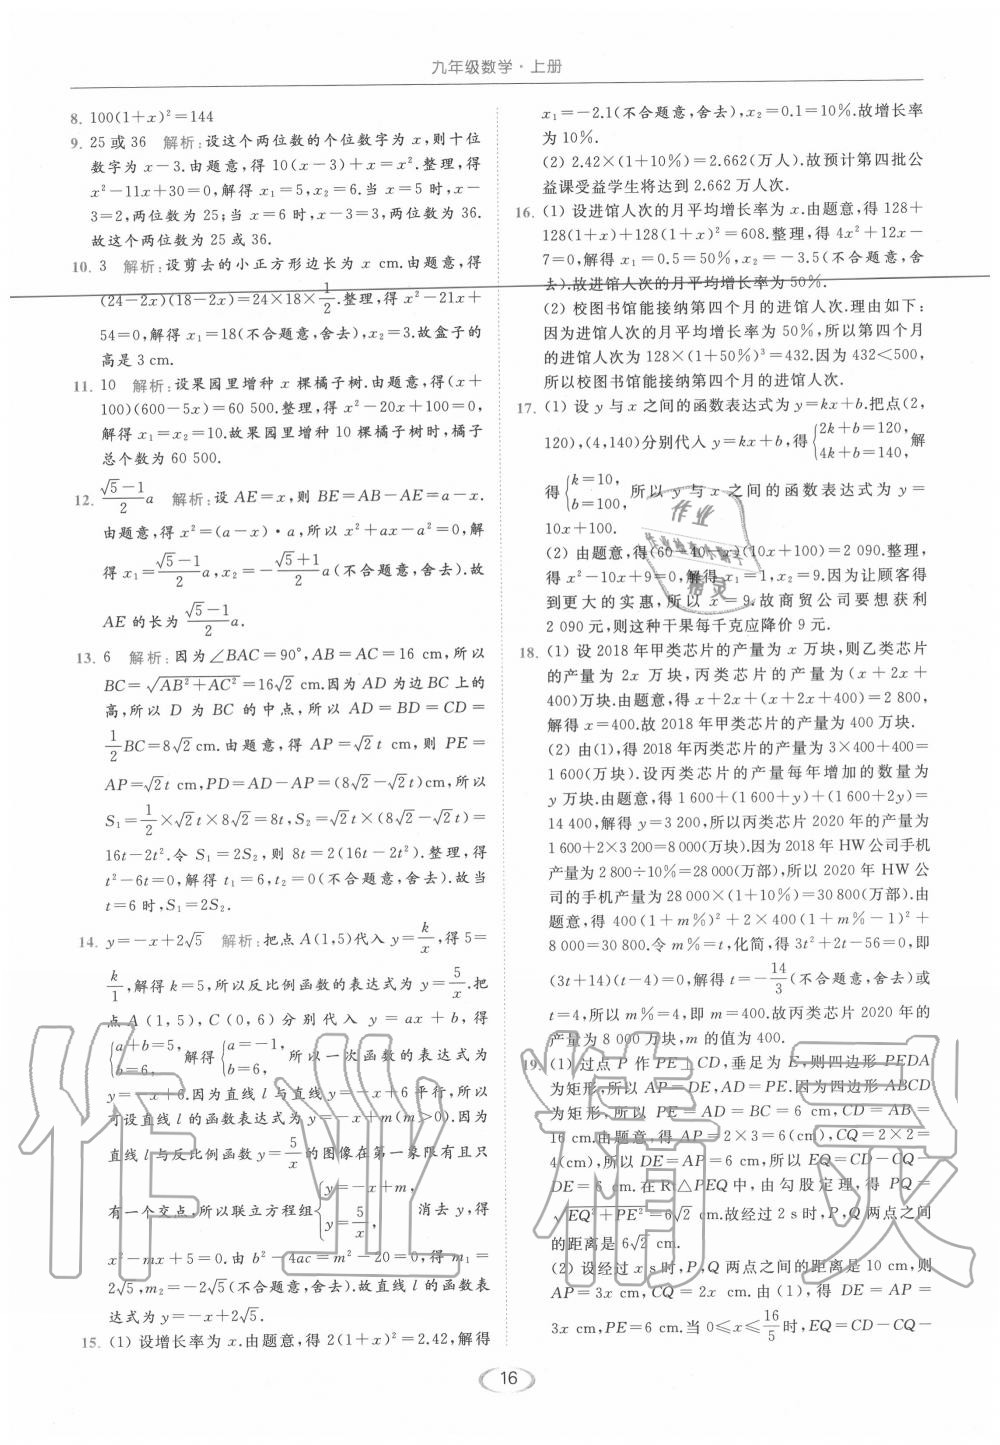 九年级数学·上册
8. 100(1+x)²=144
9. 25或36 解析:设这个两位数的个位数字为 x,则十位
数字为 x−3.由题意,得 10(x−3)+x=x².整理,得
x²−11x+30=0,解得 x₁=5,x₂=6.当 x=5 时,x−
3=2,两位数为 25;当 x=6 时,x−3=3,两位数为 36.
故这个两位数为 25 或 36.
10. 3 解析:设剪去的小正方形边长为 x cm.由题意,得
(24−2x)(18−2x)=24×18×1/2.整理,得 x²−21x+
54=0,解得 x₁=18(不合题意,舍去),x₂=3.故盒子的
高是 3 cm.
11. 10 解析:设果园里增种 x 棵橘子树.由题意,得(x+
100)(600−5x)=60 500.整理,得 x²−20x+100=0,
解得 x₁=x₂=10.故果园里增种 10 棵橘子树时,橘子
总个数为 60 500.
12. (√5−1)/2 a 解析:设 AE=x,则 BE=AB−AE=a−x.
由题意,得 x²=(a−x)·a,所以 x²+ax−a²=0,解
得 x₁=(√5−1)/2 a,x₂=−(√5+1)/2 a(不合题意,舍去).故
AE 的长为 (√5−1)/2 a.
13. 6 解析:因为∠BAC=90°,AB=AC=16 cm,所以
BC=√(AB²+AC²)=16√2 cm.因为 AD 为边 BC 上的
高,所以 D 为 BC 的中点,所以 AD=BD=CD=
1/2 BC=8√2 cm.由题意,得 AP=√2t cm,则 PE=
AP=√2t cm,PD=AD−AP=(8√2−√2t)cm.所以
S₁=1/2×√2t×8√2=8t,S₂=√2t×(8√2−√2t)=
16t−2t².令 S₁=2S₂,则 8t=2(16t−2t²).整理,得
t²−6t=0,解得 t₁=6,t₂=0(不合题意,舍去).故当
t=6 时,S₁=2S₂.
14. y=−x+2√5 解析:把点 A(1,5)代入 y=k/x,得 5=
k/1,解得 k=5,所以反比例函数的表达式为 y=5/x.把
点 A(1,5),C(0,6)分别代入 y=ax+b,得
{a+b=5, b=6, 解得{a=−1, b=6, 所以一次函数的表达式为
y=−x+6.因为直线 l 与直线 y=−x+6 平行,所以
可设直线 l 的函数表达式为 y=−x+m(m>0).因为
直线 l 与反比例函数 y=5/x 的图像在第一象限有且只
有一个交点,所以联立方程组{y=−x+m, y=5/x, 消去 y,得
x²−mx+5=0.由 b²−4ac=m²−20=0,得 m₁=
2√5,m₂=−2√5(不合题意,舍去).故直线 l 的函数表
达式为 y=−x+2√5.
15. (1) 设增长率为 x.由题意,得 2(1+x)²=2.42,解得
x₁=−2.1(不合题意,舍去),x₂=0.1=10%.故增长率
为 10%.
(2) 2.42×(1+10%)=2.662(万人).故预计第四批公
益课受益学生将达到 2.662 万人次.
16. (1) 设进馆人次的月平均增长率为 x.由题意,得 128+
128(1+x)+128(1+x)²=608.整理,得 4x²+12x−
7=0,解得 x₁=0.5=50%,x₂=−3.5(不合题意,舍
去).故进馆人次的月平均增长率为 50%.
(2) 校图书馆能接纳第四个月的进馆人次.理由如下:
因为进馆人次的月平均增长率为 50%,所以第四个月
的进馆人次为 128×(1+50%)³=432.因为 432<500,
所以校图书馆能接纳第四个月的进馆人次.
17. (1) 设 y 与 x 之间的函数表达式为 y=kx+b.把点(2,
120),(4,140)分别代入 y=kx+b,得{2k+b=120, 4k+b=140, 解
得{k=10, b=100, 所以 y 与 x 之间的函数表达式为 y=
10x+100.
(2) 由题意,得(60−40−x)(10x+100)=2 090.整理,
得 x²−10x+9=0,解得 x₁=1,x₂=9.因为让顾客得
到更大的实惠,所以 x=9.故商贸公司要想获利
2 090 元,则这种干果每千克应降价 9 元.
18. (1) 设 2018 年甲类芯片的产量为 x 万块,则乙类芯片
的产量为 2x 万块,丙类芯片的产量为(x+2x+
400)万块.由题意,得 x+2x+(x+2x+400)=2 800,
解得 x=400.故 2018 年甲类芯片的产量为 400 万块.
(2) 由(1),得 2018 年丙类芯片的产量为 3×400+400=
1 600(万块).设丙类芯片的产量每年增加的数量为
y 万块.由题意,得 1 600+(1 600+y)+(1 600+2y)=
14 400,解得 y=3 200,所以丙类芯片 2020 年的产量为
1 600+2×3 200=8 000(万块).因为 2018 年 HW 公司手机
产量为 2 800÷10%=28 000(万部),所以 2020 年 HW 公
司的手机产量为 28 000×(1+10%)=30 800(万部).由
题意,得 400(1+m%)²+2×400(1+m%−1)²+
8 000=30 800.令 m%=t,化简,得 3t²+2t−56=0,即
(3t+14)(t−4)=0,解得 t=−14/3(不合题意,舍去)或
t=4,所以 m%=4,即 m=400.故丙类芯片 2020 年的
产量为 8 000 万块,m 的值为 400.
19. (1) 过点 P 作 PE⊥CD,垂足为 E,则四边形 PEDA
为矩形,所以 AP=DE,AD=PE.因为四边形 ABCD
为矩形,所以 PE=AD=BC=6 cm,CD=AB=
16 cm.由题意,得 AP=2×3=6(cm),CQ=2×2=
4(cm),所以 DE=AP=6 cm,所以 EQ=CD−CQ−
DE=6 cm.在 Rt△PEQ 中,由勾股定理,得 PQ=
√(EQ²+PE²)=6√2 cm.故经过 2 s 时,P,Q 两点之间
的距离是 6√2 cm.
(2) 设经过 x s 时,P,Q 两点之间的距离是 10 cm,则
AP=3x cm,CQ=2x cm.由(1),得 DE=AP=
3x cm,PE=6 cm.当 0≤x≤16/5 时,EQ=CD−CQ−
16
作业精灵